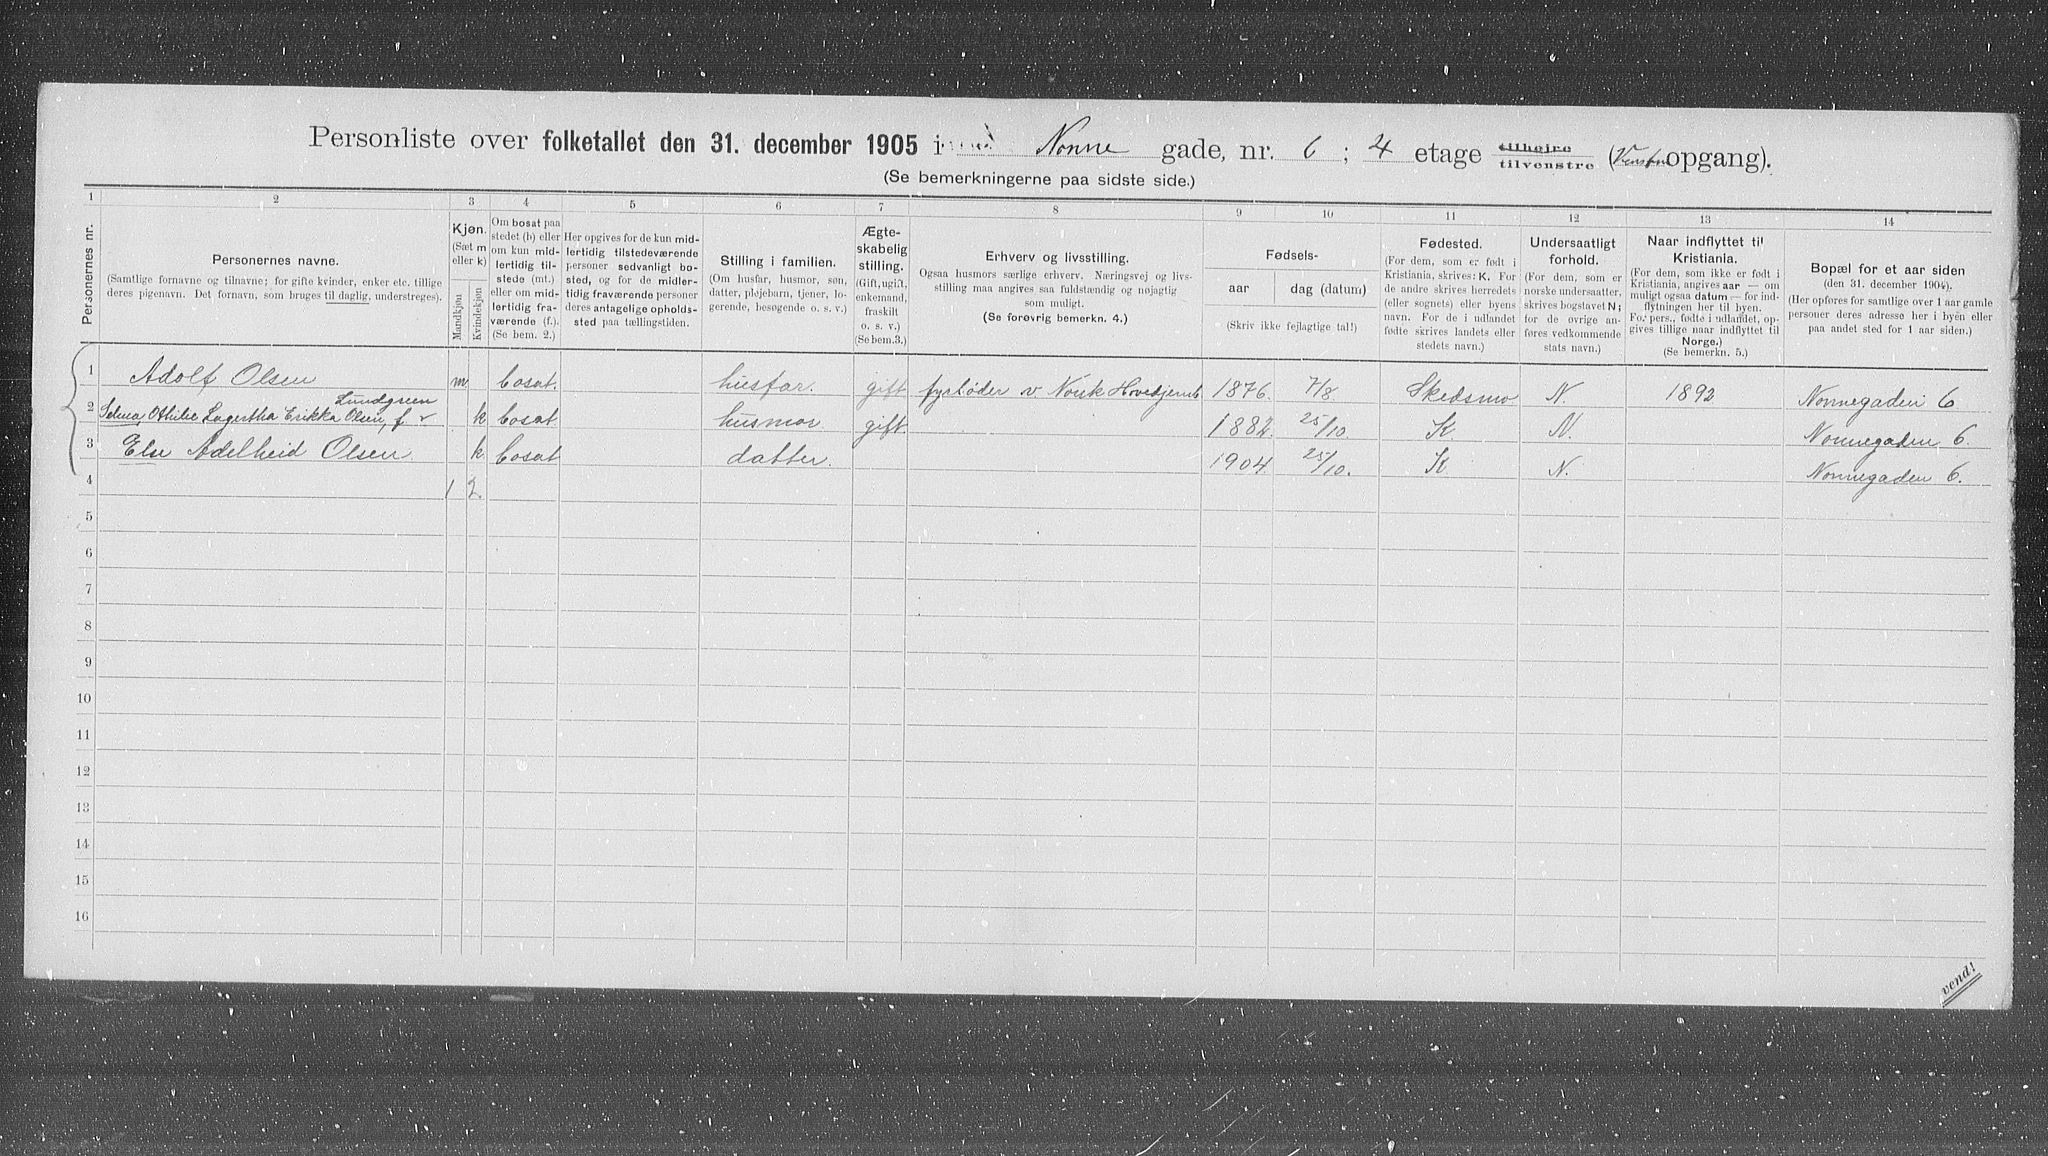 Personliste over folketallet den 31. december 1905 i Nonne gade, nr. 6; 4 etage tilhøire tilvenstre (Venstre opgang).
(Se bemerkningerne paa sidste side.)
1 2 3 4 5 6 7 8 9 10 11 12 13 14
Personernes nr.
Personernes navne.
(Samtlige fornavne og tilnavne; for gifte kvinder, enker etc. tillige
deres pigenavn. Det fornavn, som bruges til daglig, understreges).
Kjøn.
(Sæt m
eller k)
Mandkjøn
Kvindekjøn
Om bosat paa
stedet (b) eller
om kun mid-
lertidig til-
stede (mt.)
eller om mid-
lertidig fra-
værende (f.).
(Se bem. 2.)
Her opgives for de kun mid-
lertidig tilstedeværende
personer sedvanligt bo-
sted, og for de midler-
tidig fraværende personer
deres antagelige opholds-
sted paa tællingstiden.
Stilling i familien.
(Om husfar, husmor, søn,
datter, plejebarn, tjener, lo-
gerende, besøgende o. s. v.)
Ægte-
skabelig
stilling.
(Gift, ugift,
enkemand,
fraskilt
o. s. v.)
(Se bem. 3.)
Erhverv og livsstilling.
Ogsaa husmors særlige erhverv. Næringsvej og livs-
stilling maa angives saa fuldstændig og nøjagtig
som muligt.
(Se forøvrig bemerkn. 4.)
Fødsels-
aar
dag (datum)
(Skriv ikke fejlagtige tal!)
Fødested.
(For dem, som er født i
Kristiania, skrives: K. For
de andre skrives herredets
(eller sognets) eller byens
navn. For de i udlandet
fødte skrives landets eller
stedets navn.)
Undersaatligt
forhold.
(For dem, som er
norske undersaatter,
skrives bogstavet N;
for de øvrige an-
føres vedkommende
stats navn.)
Naar indflyttet til
Kristiania.
(For dem, som ikke er født i
Kristiania, angives aar — om
muligt ogsaa datum — for ind-
flytningen her til byen.
For pers., fødte i udlandet, op-
gives tillige naar indflyttet til
Norge.)
(Se bemerkn. 5.)
Bopæl for et aar siden
(den 31. december 1904).
(Her opføres for samtlige over 1 aar gamle
personer deres adresse her i byen eller
paa andet sted for 1 aar siden.)
1 Adolf Olsen m bosat husfar. gift fyrbøder v Norsk Hovedjernb 1876 7/8 Skedsmo N. 1892 Nonnegaden 6
Lundgreen
2 Selma Othilie Lagertha Erikka Olsen, f k bosat husmor gift 1882 25/10. K N. Nonnegaden 6.
3 Else Adelheid Olsen k bosat datter. 1904 25/10. K N. Nonnegaden 6.
4 1 2.
5
6
7
8
9
10
11
12
13
14
15
16
vend!